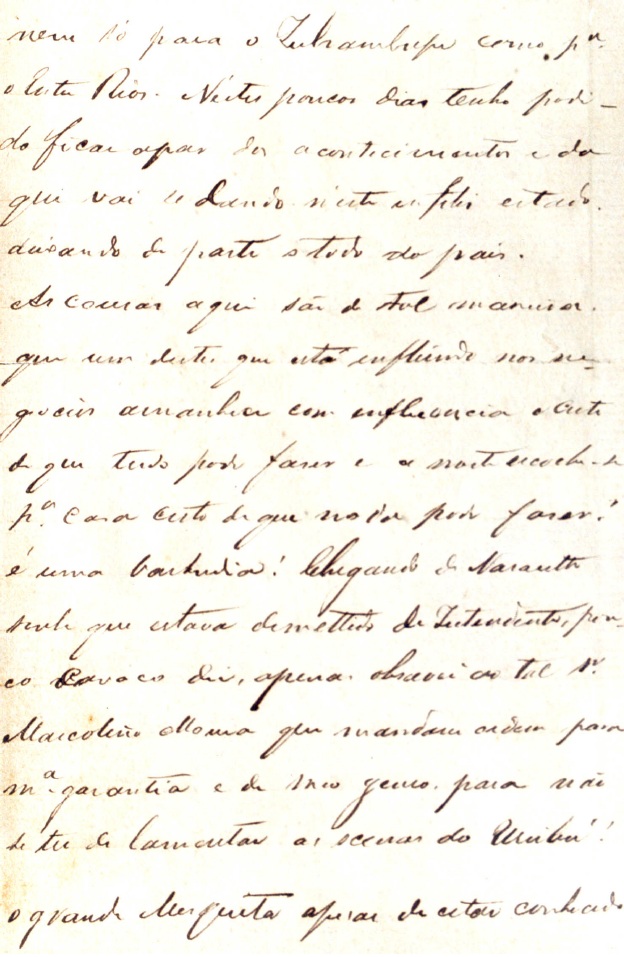 nem só para o Inhambupe como p.ª
o Entre Rios. Nestes poucos dias tenho podi-
do ficar apar dos acontecimentos e do
que vai se dando n'este infeliz estado.
deixando de parte o todo do pais.
As cousas aqui são de tal maneira.
que um destes que está influindo nos ne-
gocios amanhece com influencia e certo
de que tudo pode faser e a noite recolhe-se
p.ª casa certo de que nada pode faser!
é uma Chegando de Nazareth
soube que estava demettido de Intendente, pou-
co cavaco dei, apenas observei ao tal Sr.
Marcolino Moura que mandasse ordem para
m.ª garantia e de meo genro. para não
se ter de lamentar as scenas do Urubú!
o grande Mesquita apesar de estar conhecido